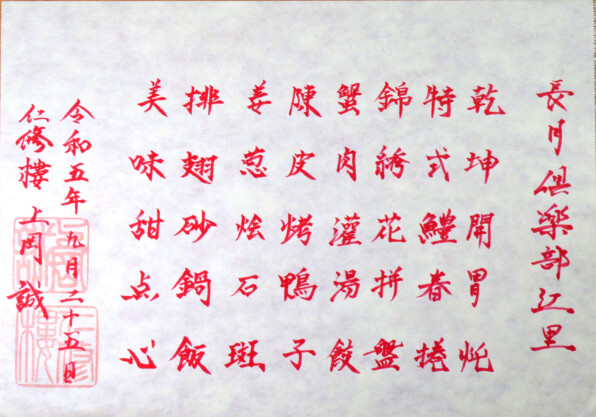 長月倶楽部江里
乾坤開胃炖
特式鱧春捲
錦綉花拼盤
蟹肉灌湯餃
陳皮烤鴨子
姜葱烩石斑
排翅砂鍋飯
美味甜点心
令和五年九月二十五日
仁修樓 上岡誠